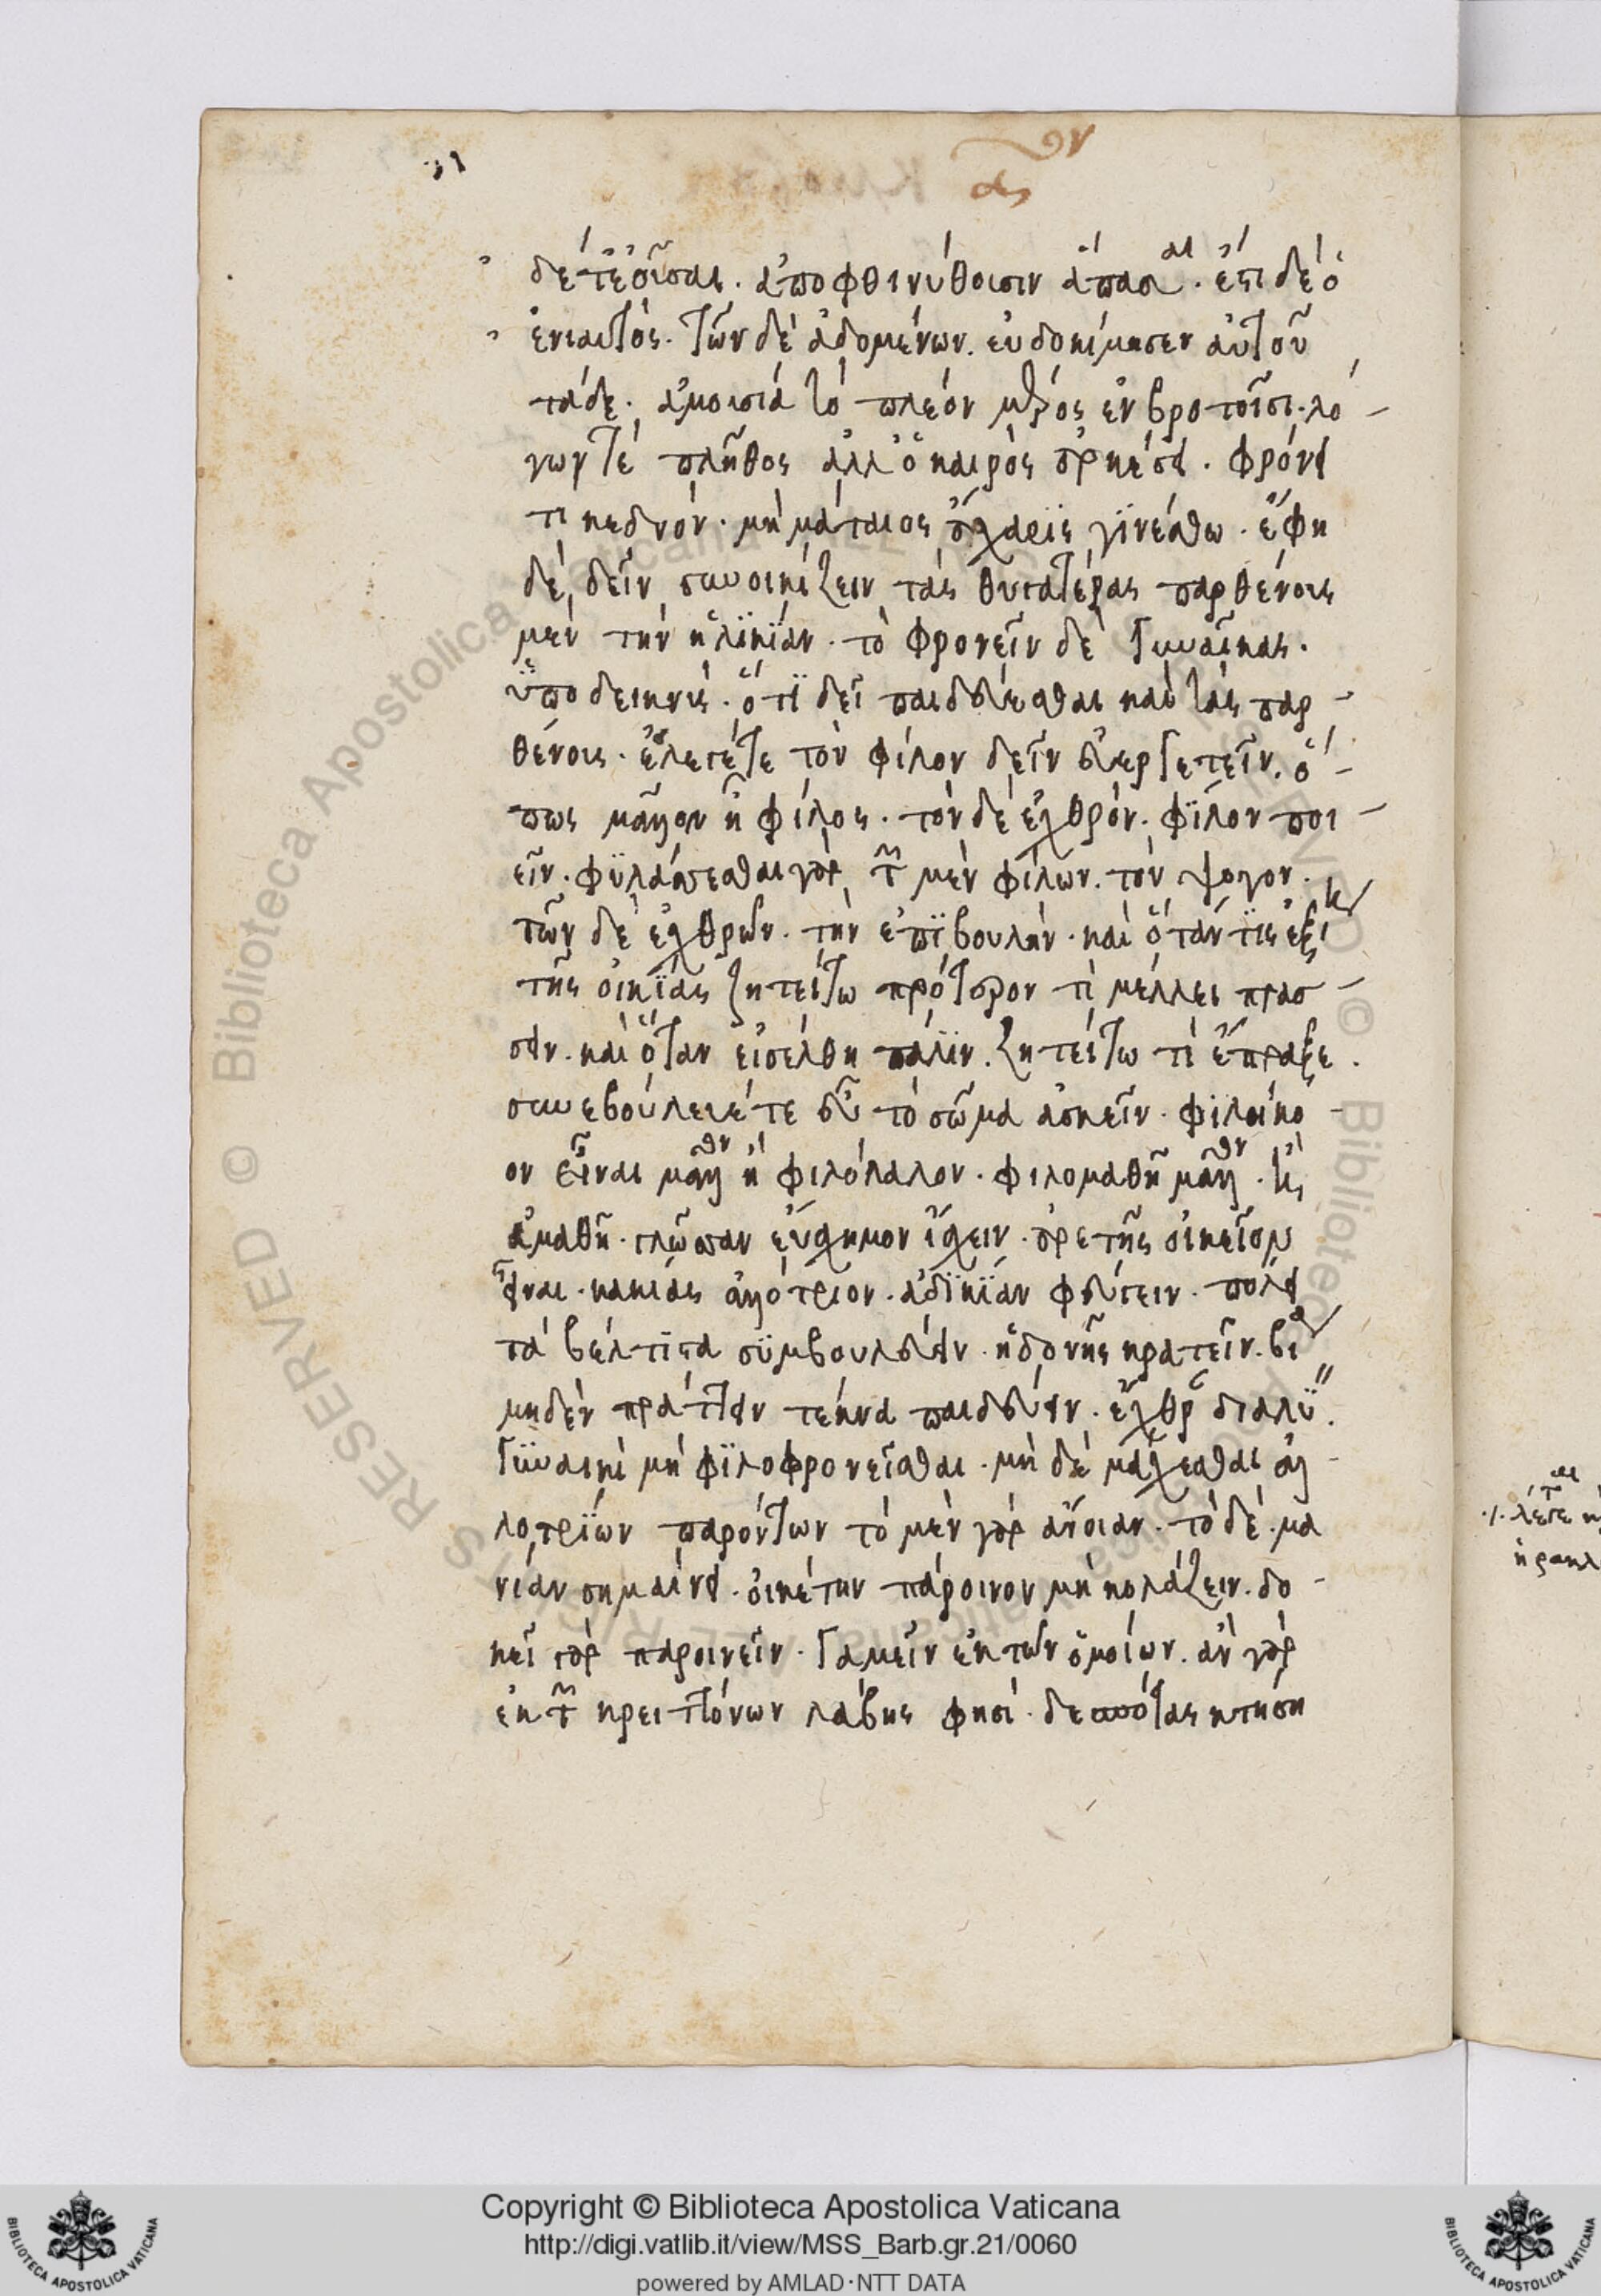 δέ τ' ἐοῦσαι. ἀποφθινύθουσιν ἅπασαι. ἔστι δὲ ὁ
ἐνιαυτός. τῶν δὲ ἀδομένων. εὐδοκίμησεν αὐτοῦ
τάδε. ἀμουσία τὸ πλέον μέρος ἐν βροτοῖσι. λό-
γων τὲ πλῆθος ἀλλ' ὁ καιρὸς ἀρκέσει. φρόνει
τι κεδνόν. μὴ μάταιος ἄχαρις γϊνέσθω. ἔφη
δὲ δεῖν συνοικίζειν τὰς θυγατέρας παρθένους
μὲν τὴν ἡλϊκϊαν. τὸ φρονεῖν δὲ γυναῖκας.
ὑποδεικνὺς. ὅτϊ δεῖ παιδεύεσθαι καὶ τὰς παρ-
θένους. ἔλεγέ τε τὸν φίλον δεῖν εὐεργετεῖν. ὅ-
πως μᾶλλον ἦ φίλος. τὸν δὲ ἐχθρὸν. φίλον ποι-
εῖν. φϋλάσσεσθαι γὰρ τῶν μὲν φίλων. τὸν ψόγον.
τῶν δὲ ἐχθρῶν. τὴν ἐπϊβουλὴν. καὶ ὅταν τϊς ἐξίη
τῆς οἰκϊας ζητείτω πρότερον τί μέλλει πράσ-
σειν. καὶ ὅταν εἰσέλθη πάλϊν. ζητείτω τί ἔπραξε.
συνεβούλευέ τε εὖ τὸ σῶμα ἀσκεῖν. φιλήκο-
ον εἶναι μᾶλλον ἢ φιλόλαλον. φιλομαθῆ μᾶλλον. ἢ
ἀμαθῆ. γλῶσσαν εὔφημον ἴσχειν. ἀρετῆς οἰκεῖον
εἶναι. κακίας ἀλλότριον. ἀδϊκϊαν φεύγειν. πόλει
τὰ βέλτϊστα σϋμβουλεύειν. ἡδονῆς κρατεῖν. βίᾳ
μηδὲν πράττειν τέκνα παιδεύειν. ἔχθρας διαλϋ.
γϋναικὶ μὴ φϊλοφρονεῖσθαι. μὴ δὲ μάχεσθαι ἀλ-
λοτρϊων παρόντων τὸ μὲν γὰρ ἄνοιαν. τὸ δὲ. μα
νίαν σημαίνει. οἰκέτην πάροινον μὴ κολάζειν. δο-
κεῖ γὰρ παροινεῖν. γαμεῖν ἐκ τῶν ὁμοίων. ἂν γὰρ
ἐκ τῶν κρειττόνων λάβης φησί. δεσπότας κτήση
Copyright © Biblioteca Apostolica Vaticana
http://digi.vatlib.it/view/MSS_Barb.gr.21/0060
powered by AMLAD·NTT DATA